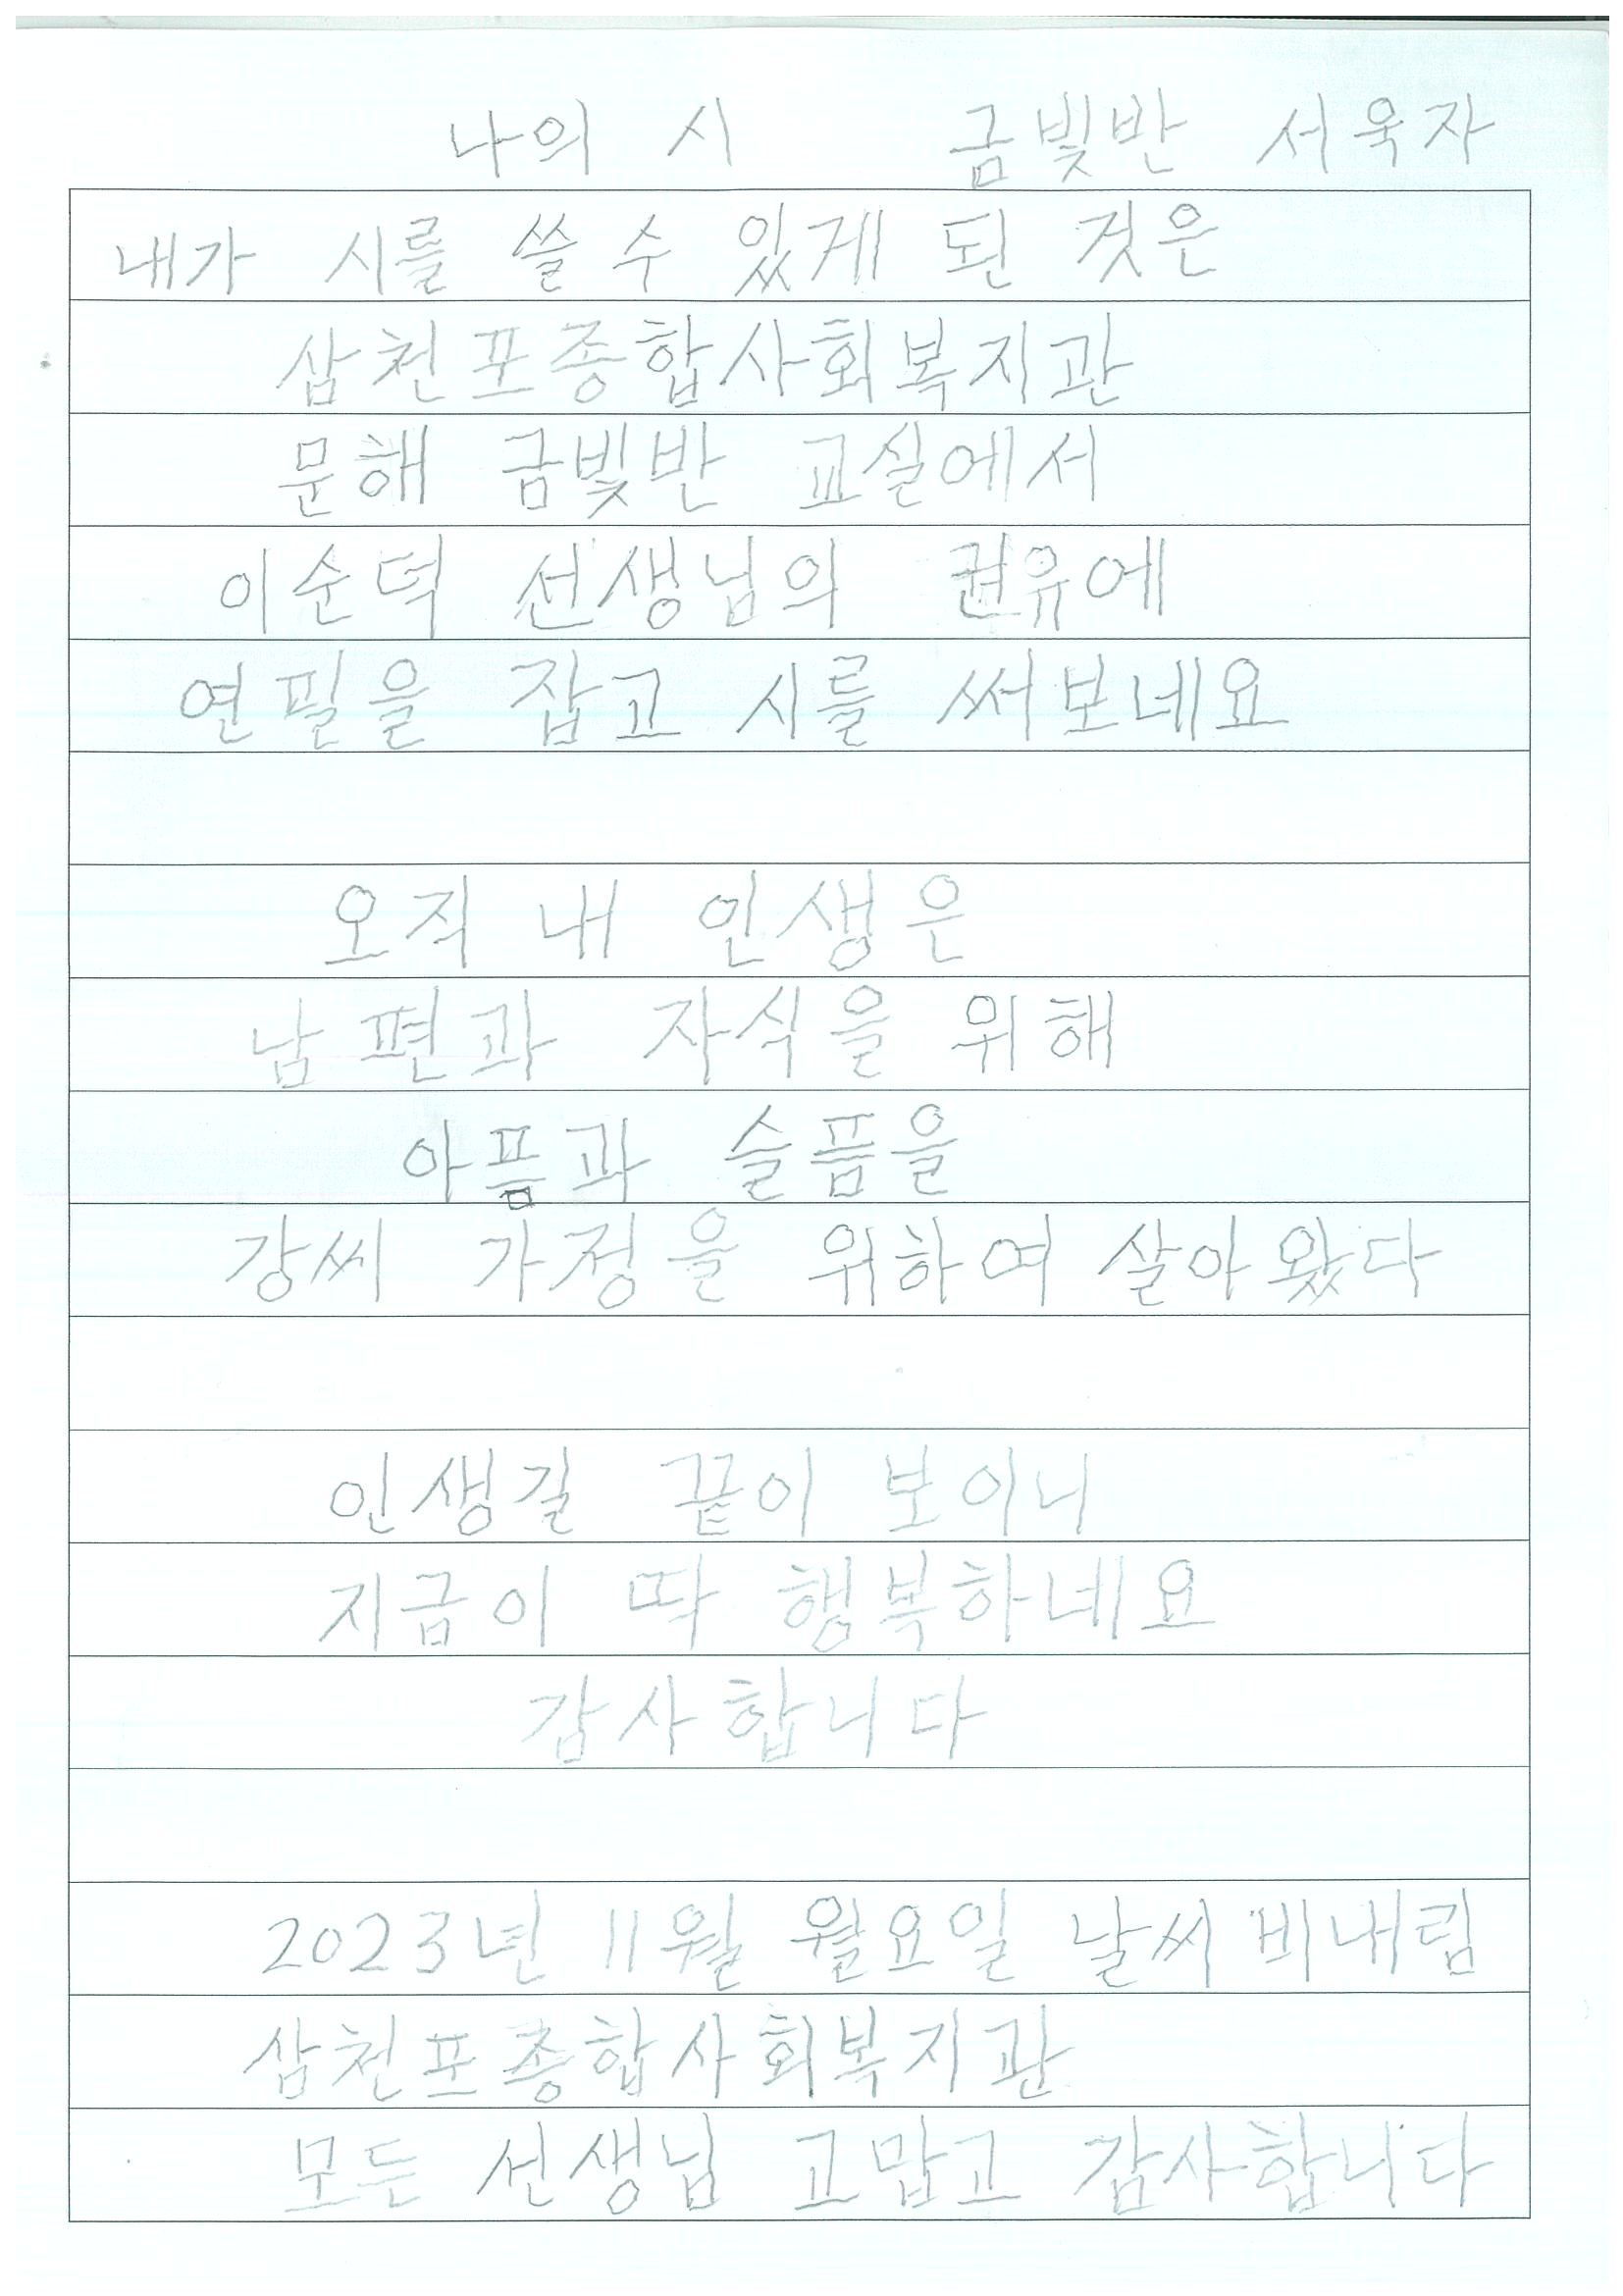 나의 시 금빛반 서욱자
내가 시를 쓸 수 있게 된 것은
삼천포종합사회복지관
문해 금빛반 교실에서
이순덕 선생님의 권유에
연필을 잡고 시를 써보네요
오직 내 인생은
남편과 자식을 위해
아픔과 슬픔을
강씨 가정을 위하여 살아왔다
인생길 끝이 보이니
지금이 딱 행복하네요
감사합니다
2023년 11월 월요일 날씨 비내림
삼천포종합사회복지관
모든 선생님 고맙고 감사합니다